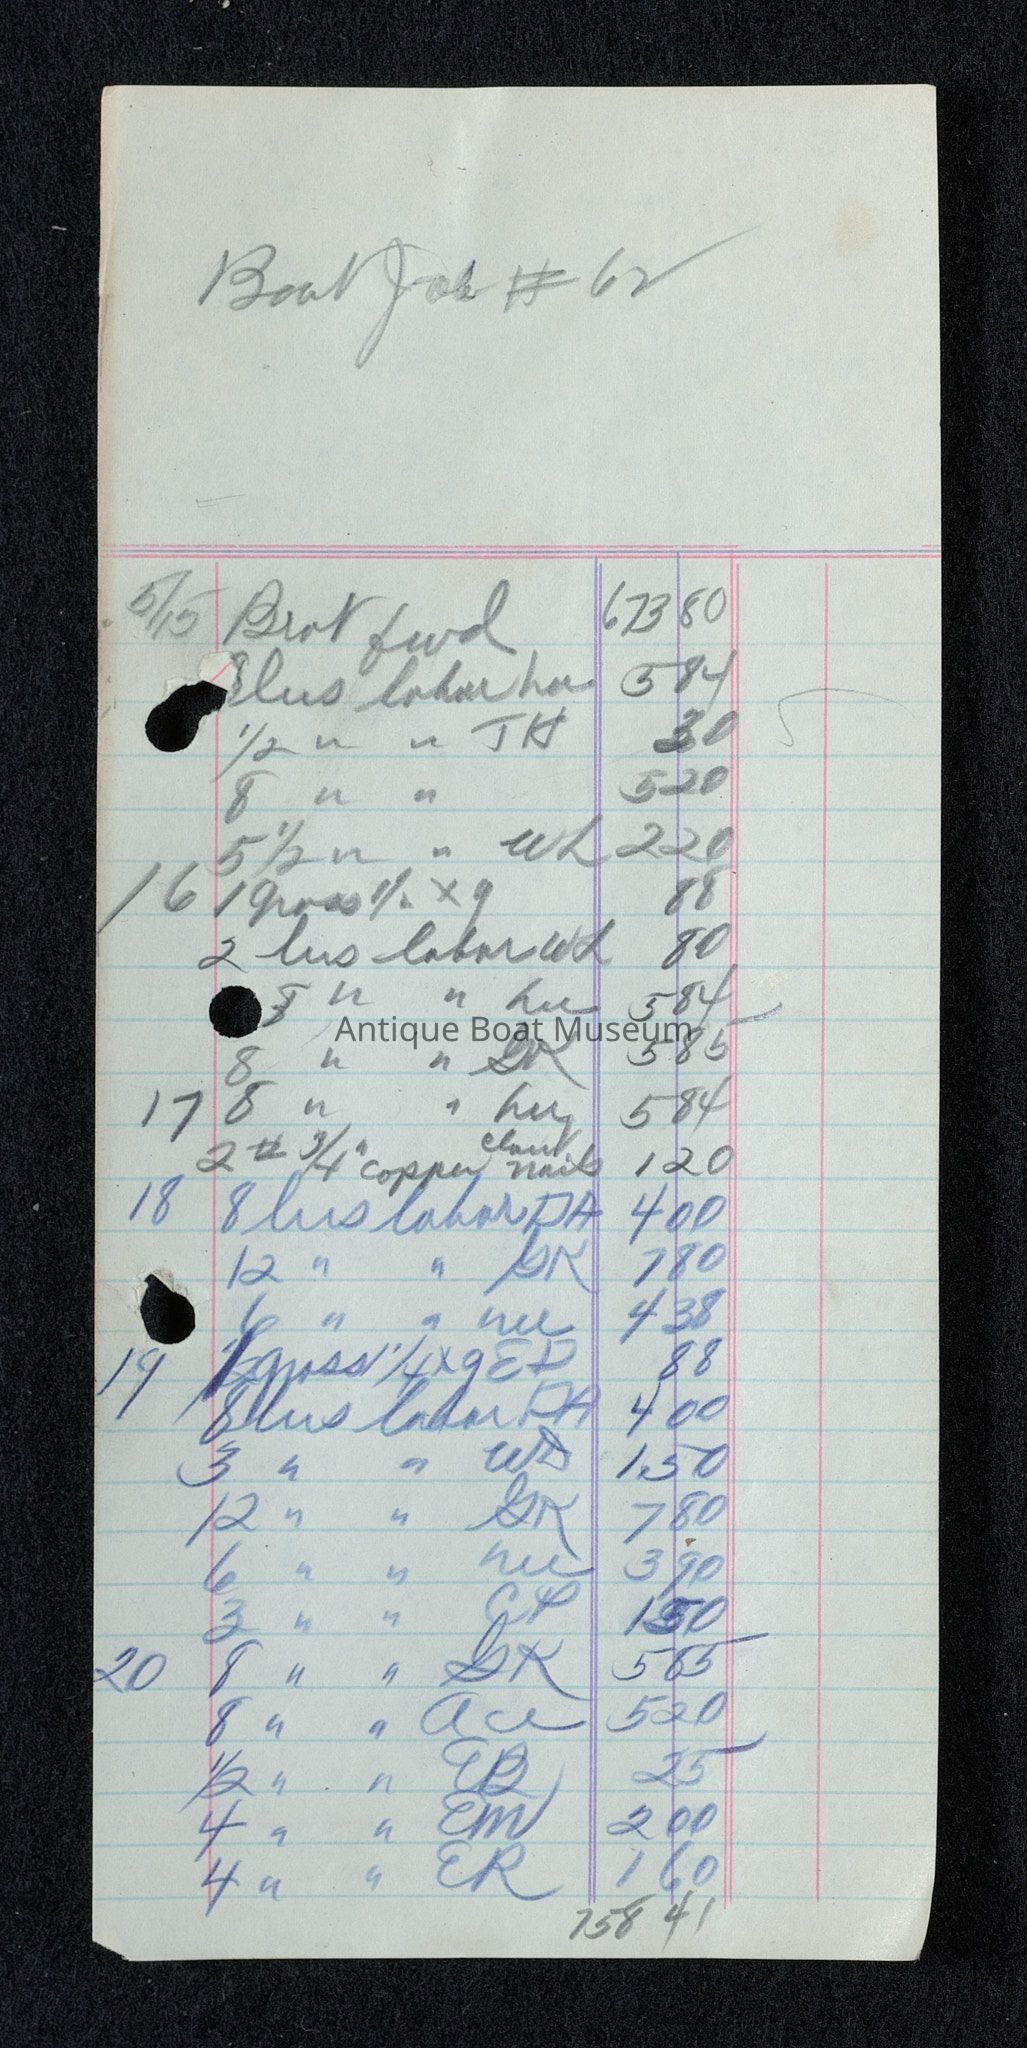 Boat Job # 62
5/15 Brot fwd 673 80
8 hrs labor 5 84
1/2 " " JH 30
8 " " 5 20
5 1/2 " " WL 2 20
16 1 gross 1 x 9 88
2 hrs labor WL 80
8 " " 5 84
Antique Boat Museum
8 " " GK 5 85
17 8 " " 5 84
2 # 3/4" copper clout nails 1 20
18 8 hrs labor DA 4 00
12 " " GK 7 80
6 " " 4 38
19 gross 1 1/4 x 9 88
8 hrs labor DA 4 00
3 " " 1 50
12 " " GK 7 80
6 " " 3 90
3 " " 1 50
20 8 " " GK 5 85
8 " " Ace 5 20
1/2 " " EB 25
4 " " EM 2 00
4 " " ER 1 60
758 41